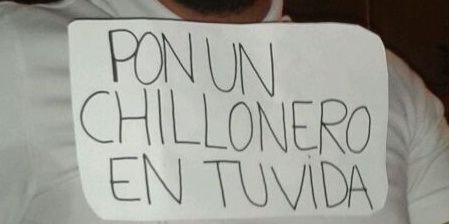 PON UN
CHILLONERO
EN TU ViDA